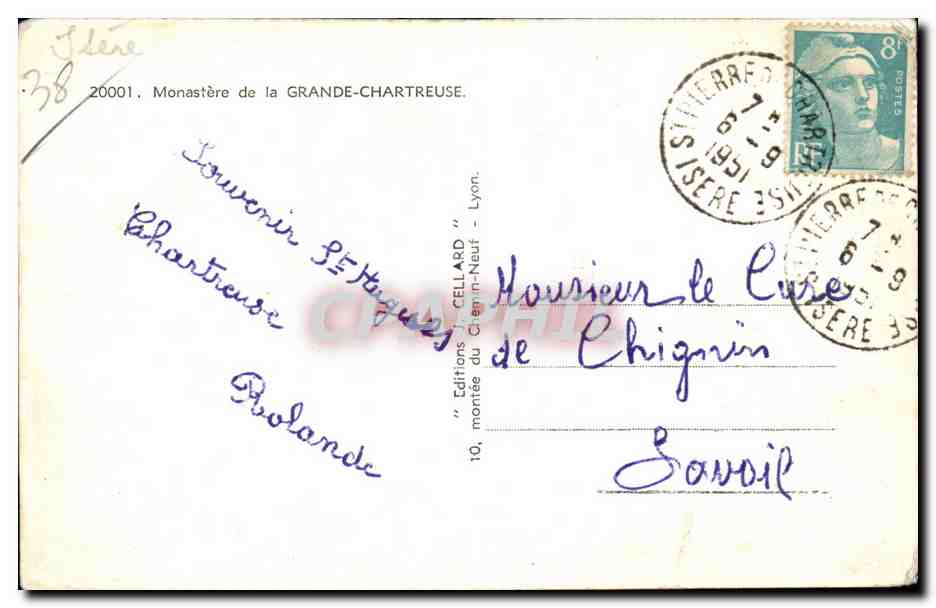 Isère
38
20001. Monastère de la GRANDE-CHARTREUSE.
Souvenir St Hugues
Chartreuse
Rolande
" Editions J. CELLARD "
10, montée du Chemin-Neuf - Lyon.
CPAPHIL
Monsieur le Cure
de Chignin
Savoie
8F
POSTES
RF
ST PIERRE DE CHARTREUSE
7 H
6 - 9
1951
ISERE
PIERRE DE C
7 H
6 - 9
1951
ISERE